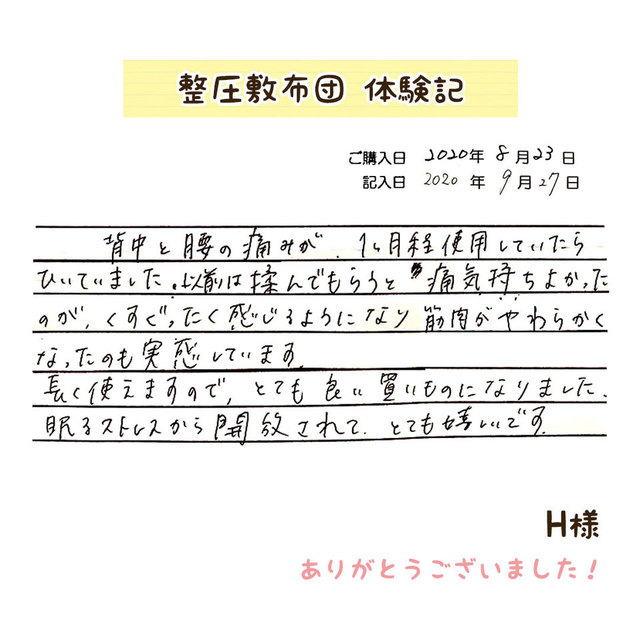 整圧敷布団 体験記
ご購入日 2020年 8月23日
記入日 2020年 9月27日
背中と腰の痛みが、1ヶ月程使用していたら
ひいていました。以前は揉んでもらうと痛気持ちよかった
のが、くすぐったく感じるようになり筋肉がやわらかく
なったのも実感しています。
長く使えますので、とても良い買いものになりました。
眠るストレスから開放されて、とても嬉しいです。
H様
ありがとうございました！